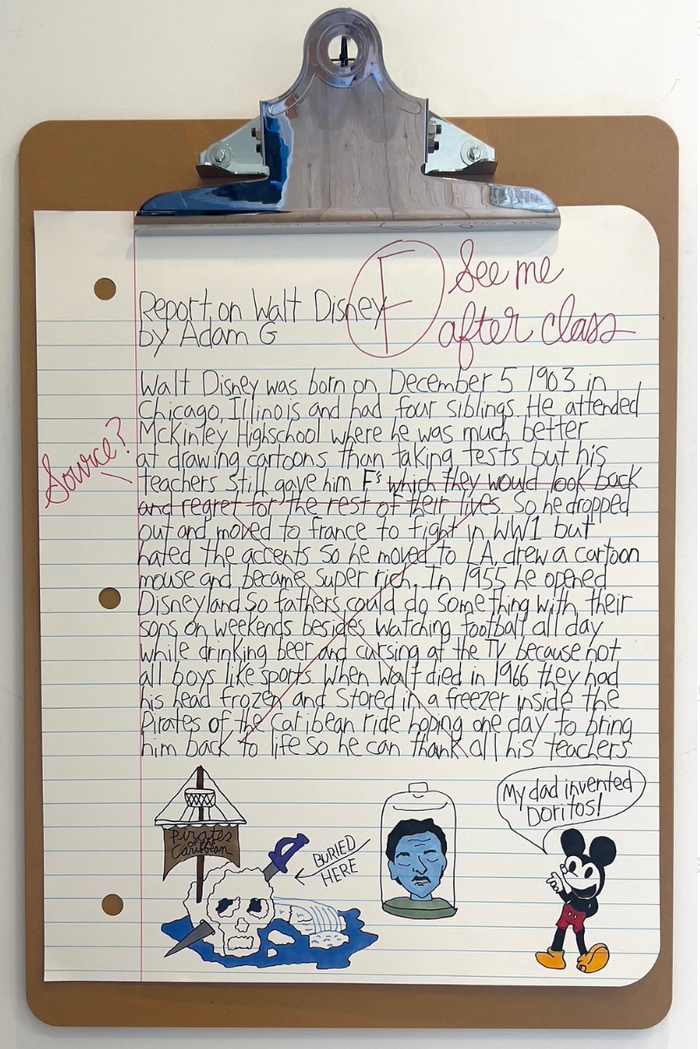 F
See me
after class
Report on Walt Disney
by Adam G
Walt Disney was born on December 5 1903 in
Chicago, Illinois and had four siblings. He attended
McKinley Highschool where he was much better
Source?
at drawing cartoons than taking tests but his
teachers still gave him F's which they would look back
and regret for the rest of their lives. So he dropped
out and moved to france to fight in WW1 but
hated the accents so he moved to LA, drew a cartoon
mouse and became super rich. In 1955 he opened
Disneyland so fathers could do something with their
sons on weekends besides watching football all day
while drinking beer and cursing at the TV because not
all boys like sports. When Walt died in 1966 they had
his head frozen and stored in a freezer inside the
Pirates of the Caribean ride hoping one day to bring
him back to life so he can thank all his teachers.
Pirates
of the
Caribbean
BURIED
HERE
My dad invented
Doritos!